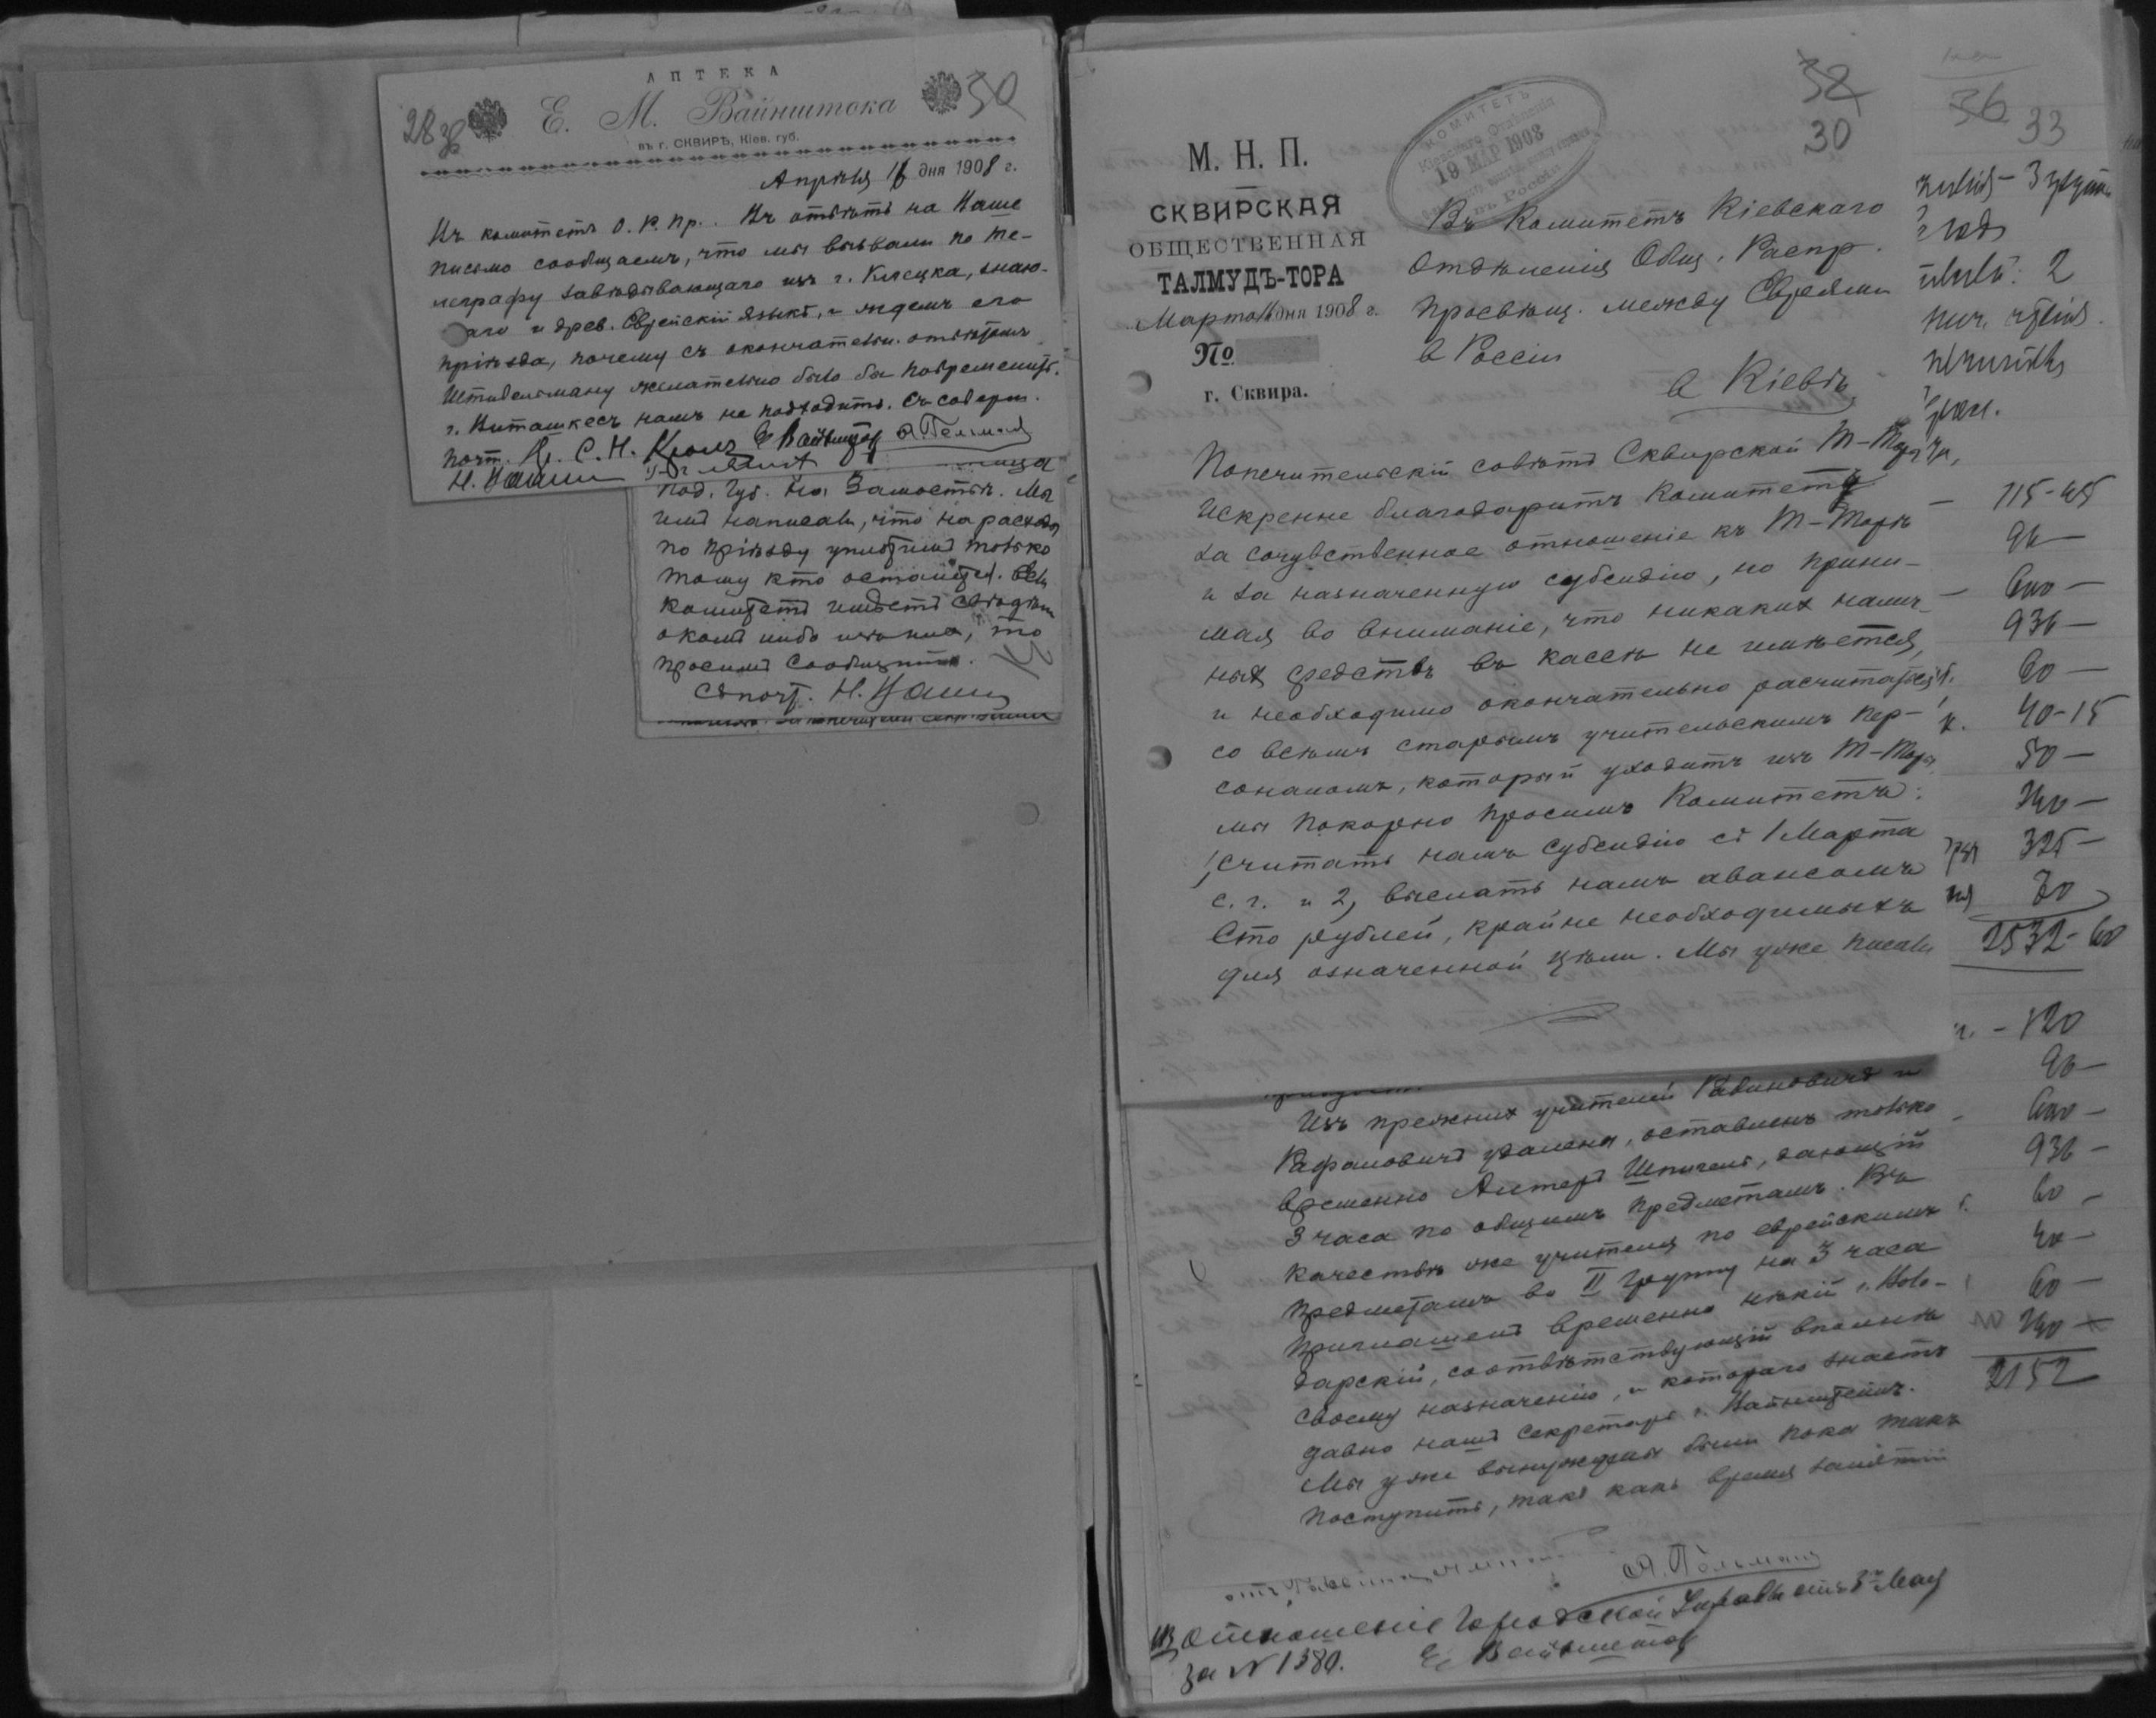 АПТЕКА
Е. М. Вайнштока
въ г. СКВИРѢ, Кіев. губ.
28
30
Апрѣля 16 дня 1908 г.
Въ комитетъ О. Р. Пр.. Въ отвѣтъ на Ваше
письмо сообщаемъ, что мы вызвали по те-
леграфу завѣдывающаго изъ г. Клецка, знаю-
аго и древ. Еврейскій языкъ, и ждемъ его
пріѣзда, почему съ окончательн. отвѣтомъ
желательно было бы повременить.
г. Виташкесъ намъ не подходитъ. Съ соверш.
почт. С. Н. Кролъ Е Вайнштокъ А. Пельманъ
под. Губ. на Замостьи. Мы
имъ написали, что на расходы
по пріѣзду уплотимъ только
тому кто останется. Если
комитетъ имѣетъ свѣдѣнія
о комъ либо изъ нихъ, то
просимъ сообщить.
Съ почт. Н.
М. Н. П.
СКВИРСКАЯ
ОБЩЕСТВЕННАЯ
ТАЛМУДЪ-ТОРА
Марта 16 дня 1908 г.
№
г. Сквира.
КОМИТЕТЪ
19 МАР 1908
въ Россіи
32
30
Въ Комитетъ Кіевскаго
Отдѣленія Общ. Распр.
просвѣщ. между Евреями
в Россіи
в Кіевѣ
Попечительскій совѣтъ Сквирской Т-Торы
искренне благодаритъ Комитетъ
за сочувственное отношеніе къ Т-Торѣ
и за назначенную субсидію, но прини-
мая во вниманіе, что никакихъ налич-
ныхъ средствъ въ кассѣ не имѣется,
и необходимо окончательно расчитаться
со всѣмъ старымъ учительскимъ пер-
соналомъ, который уходитъ изъ Т-Торы
мы покорно просимъ Комитетъ:
1, считать намъ субсидію съ 1 Марта
с. г. и 2, выслать намъ авансомъ
Сто рублей, крайне необходимыхъ
для означенной цѣли. Мы уже писали
Изъ прежнихъ учителей Рабиновичъ и
Рафаловичъ удалены, оставленъ только
временно Алтеръ Шпигель, дающій
3 часа по общимъ предметамъ. Въ
качествѣ же учителя по еврейскимъ
предметамъ во II группу на 3 часа
приглашенъ временно нѣкій г. Воло-
дарскій, соотвѣтствующій вполнѣ
своему назначенію, и котораго знаетъ
давно нашъ секретарь г. Вайнштейнъ.
Мы уже вынуждены были пока такъ
поступить, такъ какъ время занятій
А. Пельманъ
отношеніе Городской Управы отъ 3го Мая
за N 1380.
Е. Вайнштокъ
36
33
2
115-45
96 —
600 —
936 —
60 —
40-15
50 —
240 —
325 —
70
2532-60
- 120
96 —
600 —
936 —
60 —
40 —
60 —
240 —
2152